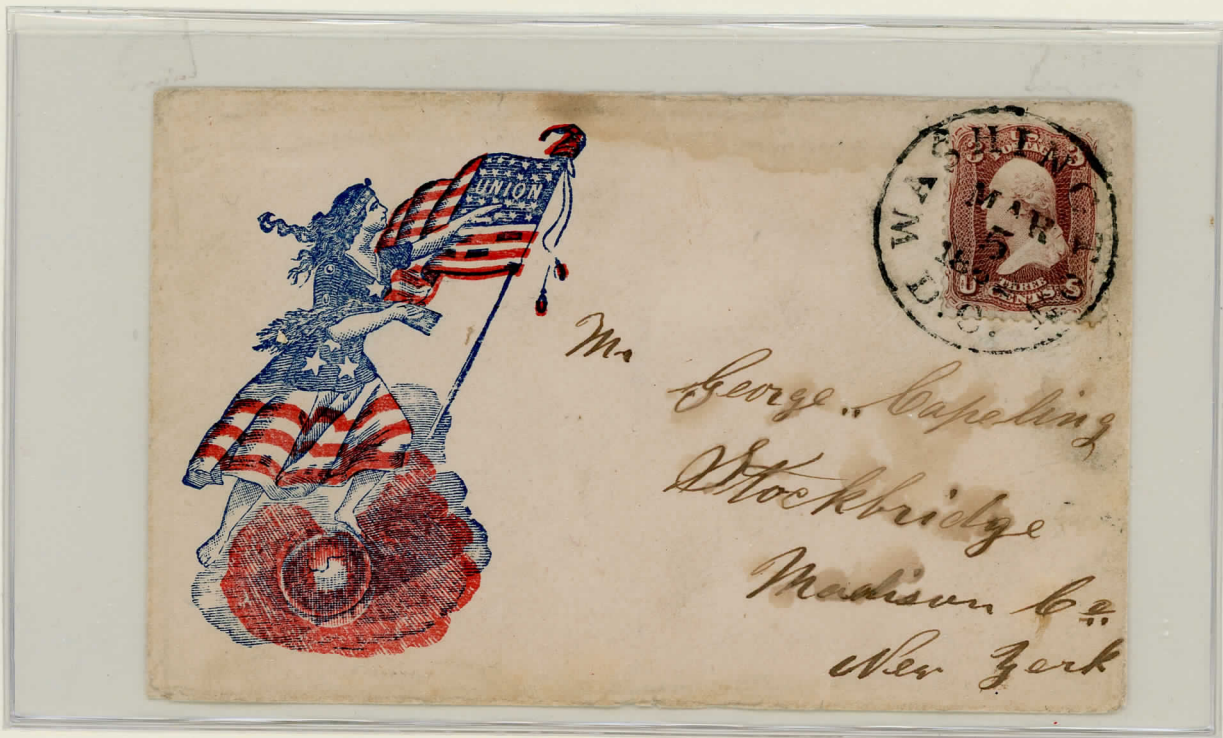 UNION
WASHINGTON
D.C.
MAR
5
THREE
CENTS
U S
Mr
George Capeling
Stockbridge
Madison Co
New York